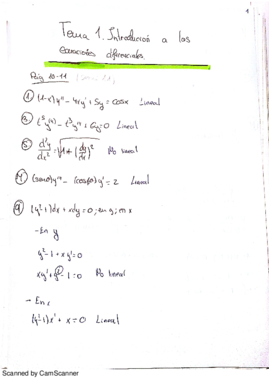 1
Tema 1. Introducció a las
ecuaciones diferenciales.
Pág 10-11
① (1-x)y'' - 4xy' + 5y = cosx Lineal
③ t⁵y⁽⁴⁾ - t³y'' + 6y = 0 Lineal
⑤ d²y/dx² = √(1+(dy/dx)²) No lineal
(senθ)y''' - (cosθ)y' = 2 Lineal
⑨ (y²-1)dx + xdy = 0; en y; en x
- En y
y² - 1 + xy' = 0
xy' + y² - 1 = 0 No lineal
- En x
(y²-1)x' + x = 0 Lineal
Scanned by CamScanner